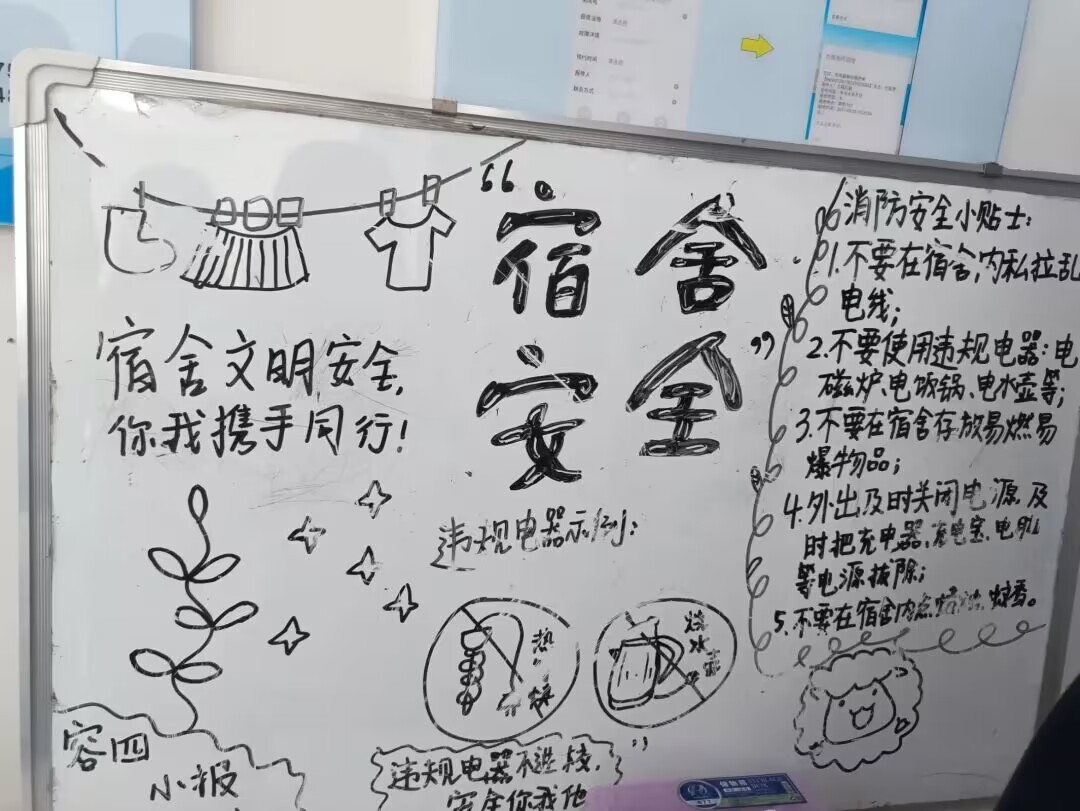 “宿舍
安全”
宿舍文明安全，
你我携手同行！
消防安全小贴士：
1.不要在宿舍内私拉乱
电线；
2.不要使用违规电器：电
磁炉、电饭锅、电水壶等；
3.不要在宿舍存放易燃易
爆物品；
4.外出及时关闭电源及
时把充电器、充电宝、电脑
等电源拔除；
5.不要在宿舍内点 蚊香。
违规电器示例：
热
烧水壶
违规电器不进校，
安全你我他
容四
小报
预约时间
联系方式